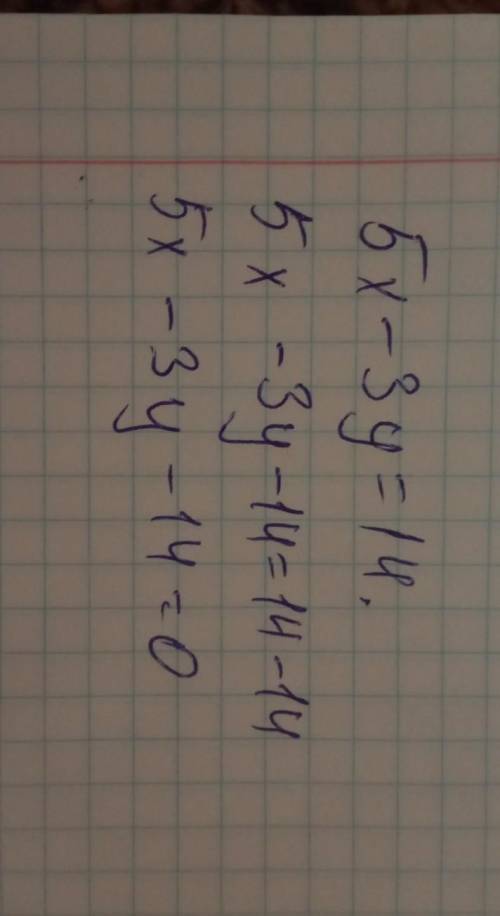 5x - 3y = 14.
5x - 3y - 14 = 14 - 14
5x - 3y - 14 = 0